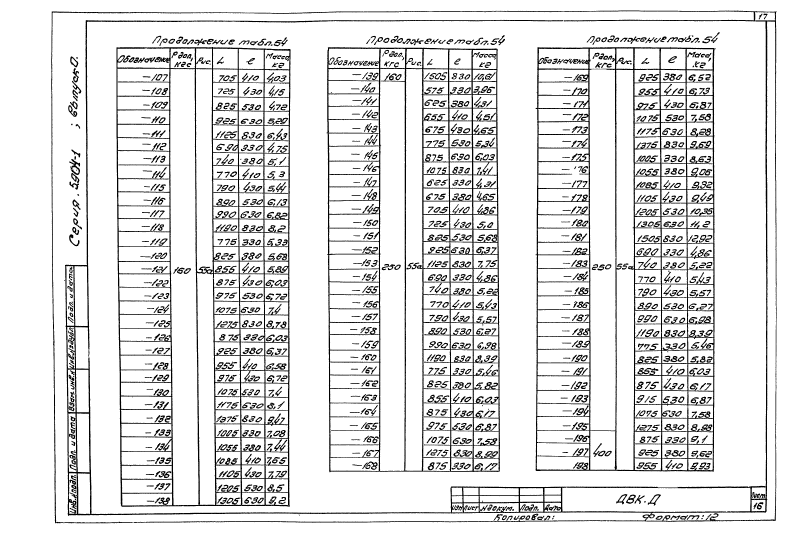 17
Продолжение табл. 54
Обозначение Рдоп, кгс Рис. L ℓ Масса, кг
-107 705 410 4,03
-108 725 430 4,15
-109 825 530 4,72
-110 925 630 5,29
-111 1125 830 6,43
-112 690 330 4,75
-113 740 380 5,1
-114 770 410 5,3
-115 790 430 5,44
-116 890 530 6,13
-117 990 630 6,82
-118 1190 830 8,2
-119 775 330 5,33
-120 825 380 5,68
-121 160 55а 855 410 5,89
-122 875 430 6,03
-123 975 530 6,72
-124 1075 630 7,4
-125 1275 830 8,78
-126 875 330 6,03
-127 925 380 6,37
-128 955 410 6,58
-129 975 430 6,72
-130 1075 530 7,4
-131 1175 630 8,1
-132 1375 830 9,47
-133 1005 330 7,08
-134 1055 380 7,44
-135 1085 410 7,65
-136 1105 430 7,79
-137 1205 530 8,5
-138 1305 630 9,2
Продолжение табл. 54
Обозначение Рдоп, кгс Рис. L ℓ Масса, кг
-139 160 1505 830 10,61
-140 575 330 3,96
-141 625 380 4,31
-142 655 410 4,51
-143 675 430 4,65
-144 775 530 5,34
-145 875 630 6,03
-146 1075 830 7,41
-147 625 330 4,31
-148 675 380 4,65
-149 705 410 4,86
-150 725 430 5,0
-151 825 530 5,68
-152 925 630 6,37
-153 250 55а 1125 830 7,75
-154 690 330 4,86
-155 740 380 5,22
-156 770 410 5,43
-157 790 430 5,57
-158 890 530 6,27
-159 990 630 6,98
-160 1190 830 8,39
-161 775 330 5,46
-162 825 380 5,82
-163 855 410 6,03
-164 875 430 6,17
-165 975 530 6,87
-166 1075 630 7,58
-167 1275 830 8,99
-168 875 330 6,17
Продолжение табл. 54
Обозначение Рдоп, кгс Рис. L ℓ Масса, кг
-169 925 380 6,52
-170 955 410 6,73
-171 975 430 6,87
-172 1075 530 7,58
-173 1175 630 8,28
-174 1375 830 9,69
-175 1005 330 8,63
-176 1055 380 9,06
-177 1085 410 9,32
-178 1105 430 9,49
-179 1205 530 10,35
-180 1305 630 11,2
-181 1505 830 12,92
-182 690 330 4,86
-183 250 55а 740 380 5,22
-184 770 410 5,43
-185 790 430 5,57
-186 890 530 6,27
-187 990 630 6,98
-188 1190 830 8,39
-189 775 330 5,46
-190 825 380 5,82
-191 855 410 6,03
-192 875 430 6,17
-193 915 530 6,87
-194 1075 630 7,58
-195 1275 830 8,98
-196 875 330 9,1
-197 400 925 380 9,62
198 955 410 9,93
Серия 5.904-1 ; выпуск 0.
Инв. № подл. Подп. и дата Взам. инв. № Инв. № дубл. Подп. и дата
Изм Лист № докум. Подп. Дата
ДВК.Д
Лист
16
Копировал:
Формат: 12